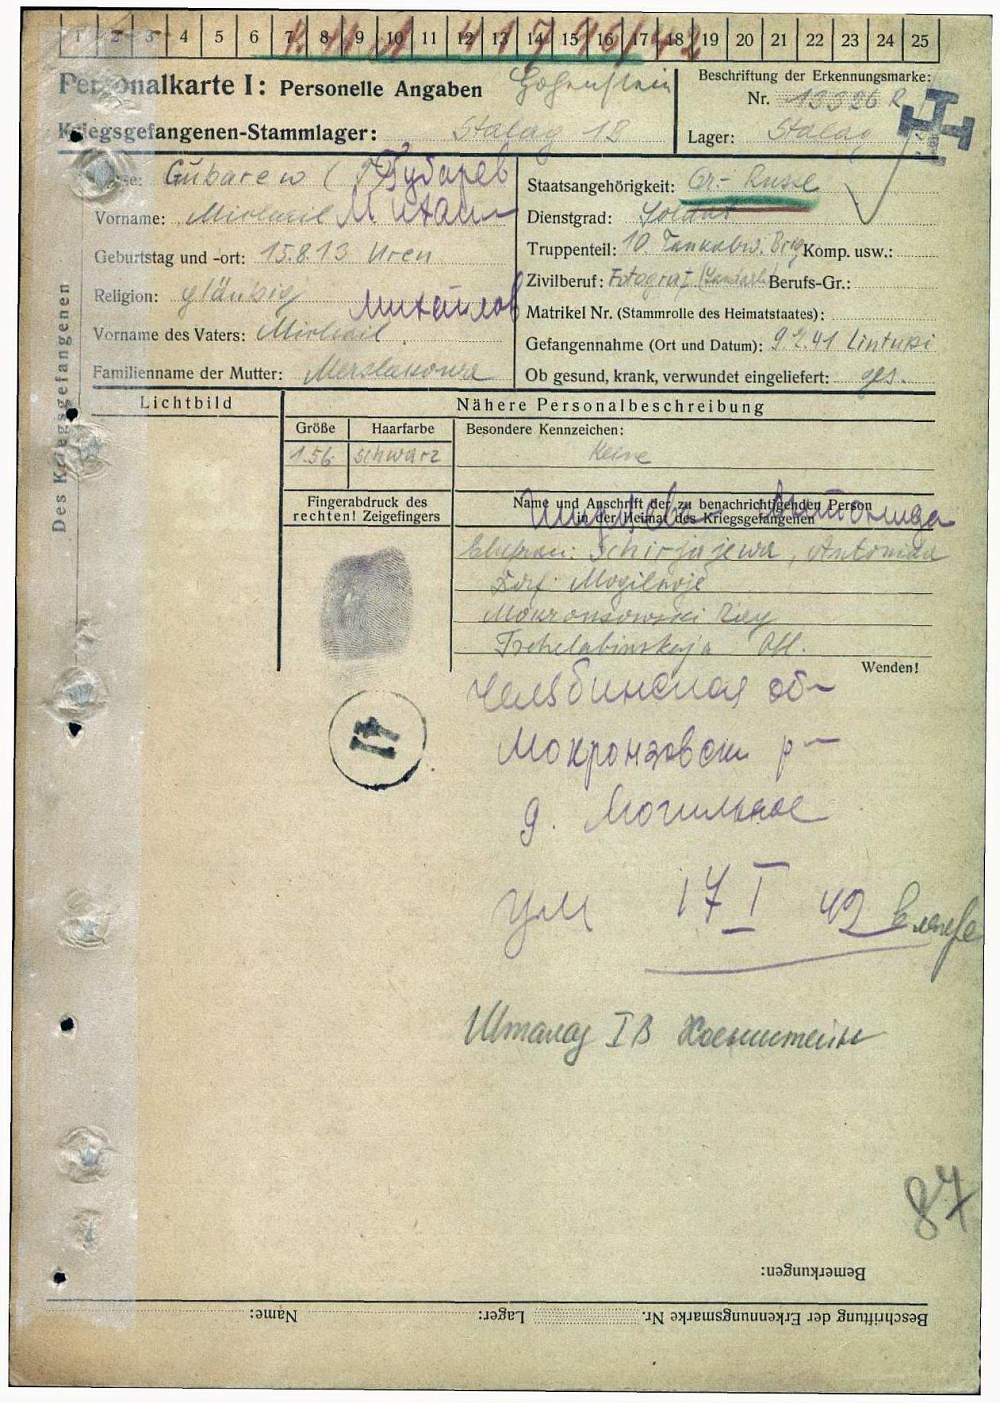 1 2 3 4 5 6 7 8 9 10 11 12 13 14 15 16 17 18 19 20 21 22 23 24 25
Personalkarte I: Personelle Angaben
Beschriftung der Erkennungsmarke:
Nr. 13326 R
Kriegsgefangenen-Stammlager: Stalag 1B
Lager: Stalag
Des Kriegsgefangenen
Gubarew Губарев
Vorname: Michail
Geburtstag und -ort: 15.8.13 Uren
Religion: gläubig
Михайлов
Vorname des Vaters: Michail
Familienname der Mutter:
Staatsangehörigkeit: Gr.- Russe
Dienstgrad: Soldat
Truppenteil: 10. Komp. usw.:
Zivilberuf: Fotograf Berufs-Gr.:
Matrikel Nr. (Stammrolle des Heimatstaates):
Gefangennahme (Ort und Datum): 9.7.41
Ob gesund, krank, verwundet eingeliefert: ges.
Lichtbild
Nähere Personalbeschreibung
Größe Haarfarbe Besondere Kennzeichen:
1.56 schwarz Keine
Fingerabdruck des
rechten! Zeigefingers
Name und Anschrift der zu benachrichtigenden Person
in der Heimat des Kriegsgefangenen
Антонида
Ehefrau: Schirjajewa, Antonida
Dorf: Mogilnoje
Mokronsowski Ray
Tschelabinskaja Obl.
Wenden!
Челябинская об-
Мокронзовски р-
д. Могильное
17
ум 17 I 42 в лагере
Шталаг I B Хоенштейн
87
Bemerkungen:
Beschriftung der Erkennungsmarke Nr. Lager: Name: